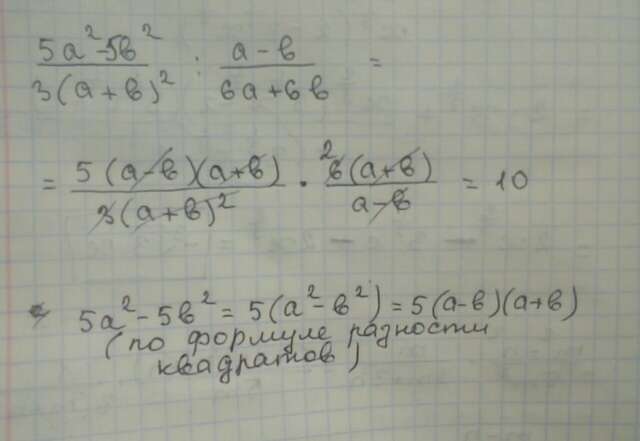 5a²-5в² / 3(a+в)² : a-в / 6a+6в =
= 5(a-в)(a+в) / 3(a+в)² · ²6(a+в) / a-в = 10
5a²-5в² = 5(a²-в²) = 5(a-в)(a+в)
(по формуле разности
квадратов)